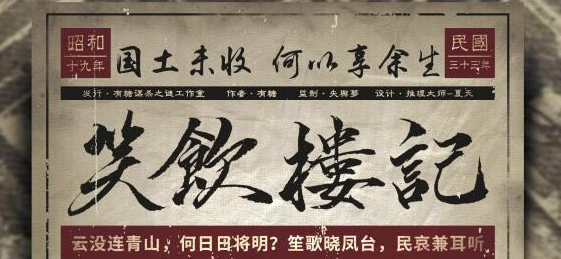 昭和
十九年
国土未收 何以享余生
民國
三十三年
发行·有糖谋杀之谜工作室 作者·有糖 监制·失舆梦 设计·推理大师-夏天
笑飲樓記
云没连青山，何日日将明？笙歌晓凤台，民哀兼耳听